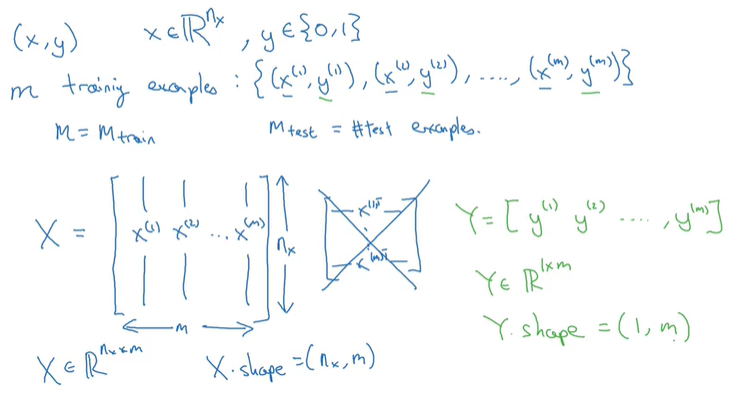 (x,y) x∈ℝ^{n_x}, y∈{0,1}
m training examples : {(x^{(1)}, y^{(1)}), (x^{(2)}, y^{(2)}), ...., (x^{(m)}, y^{(m)})}
M = M_{train} M_{test} = #test examples.
X = [ x^{(1)} x^{(2)} ... x^{(m)} ] n_x
m
x^{(1)T}
x^{(m)T}
X ∈ ℝ^{n_x × m} X.shape = (n_x, m)
Y = [ y^{(1)} y^{(2)} ...., y^{(m)} ]
Y ∈ ℝ^{1×m}
Y.shape = (1, m)